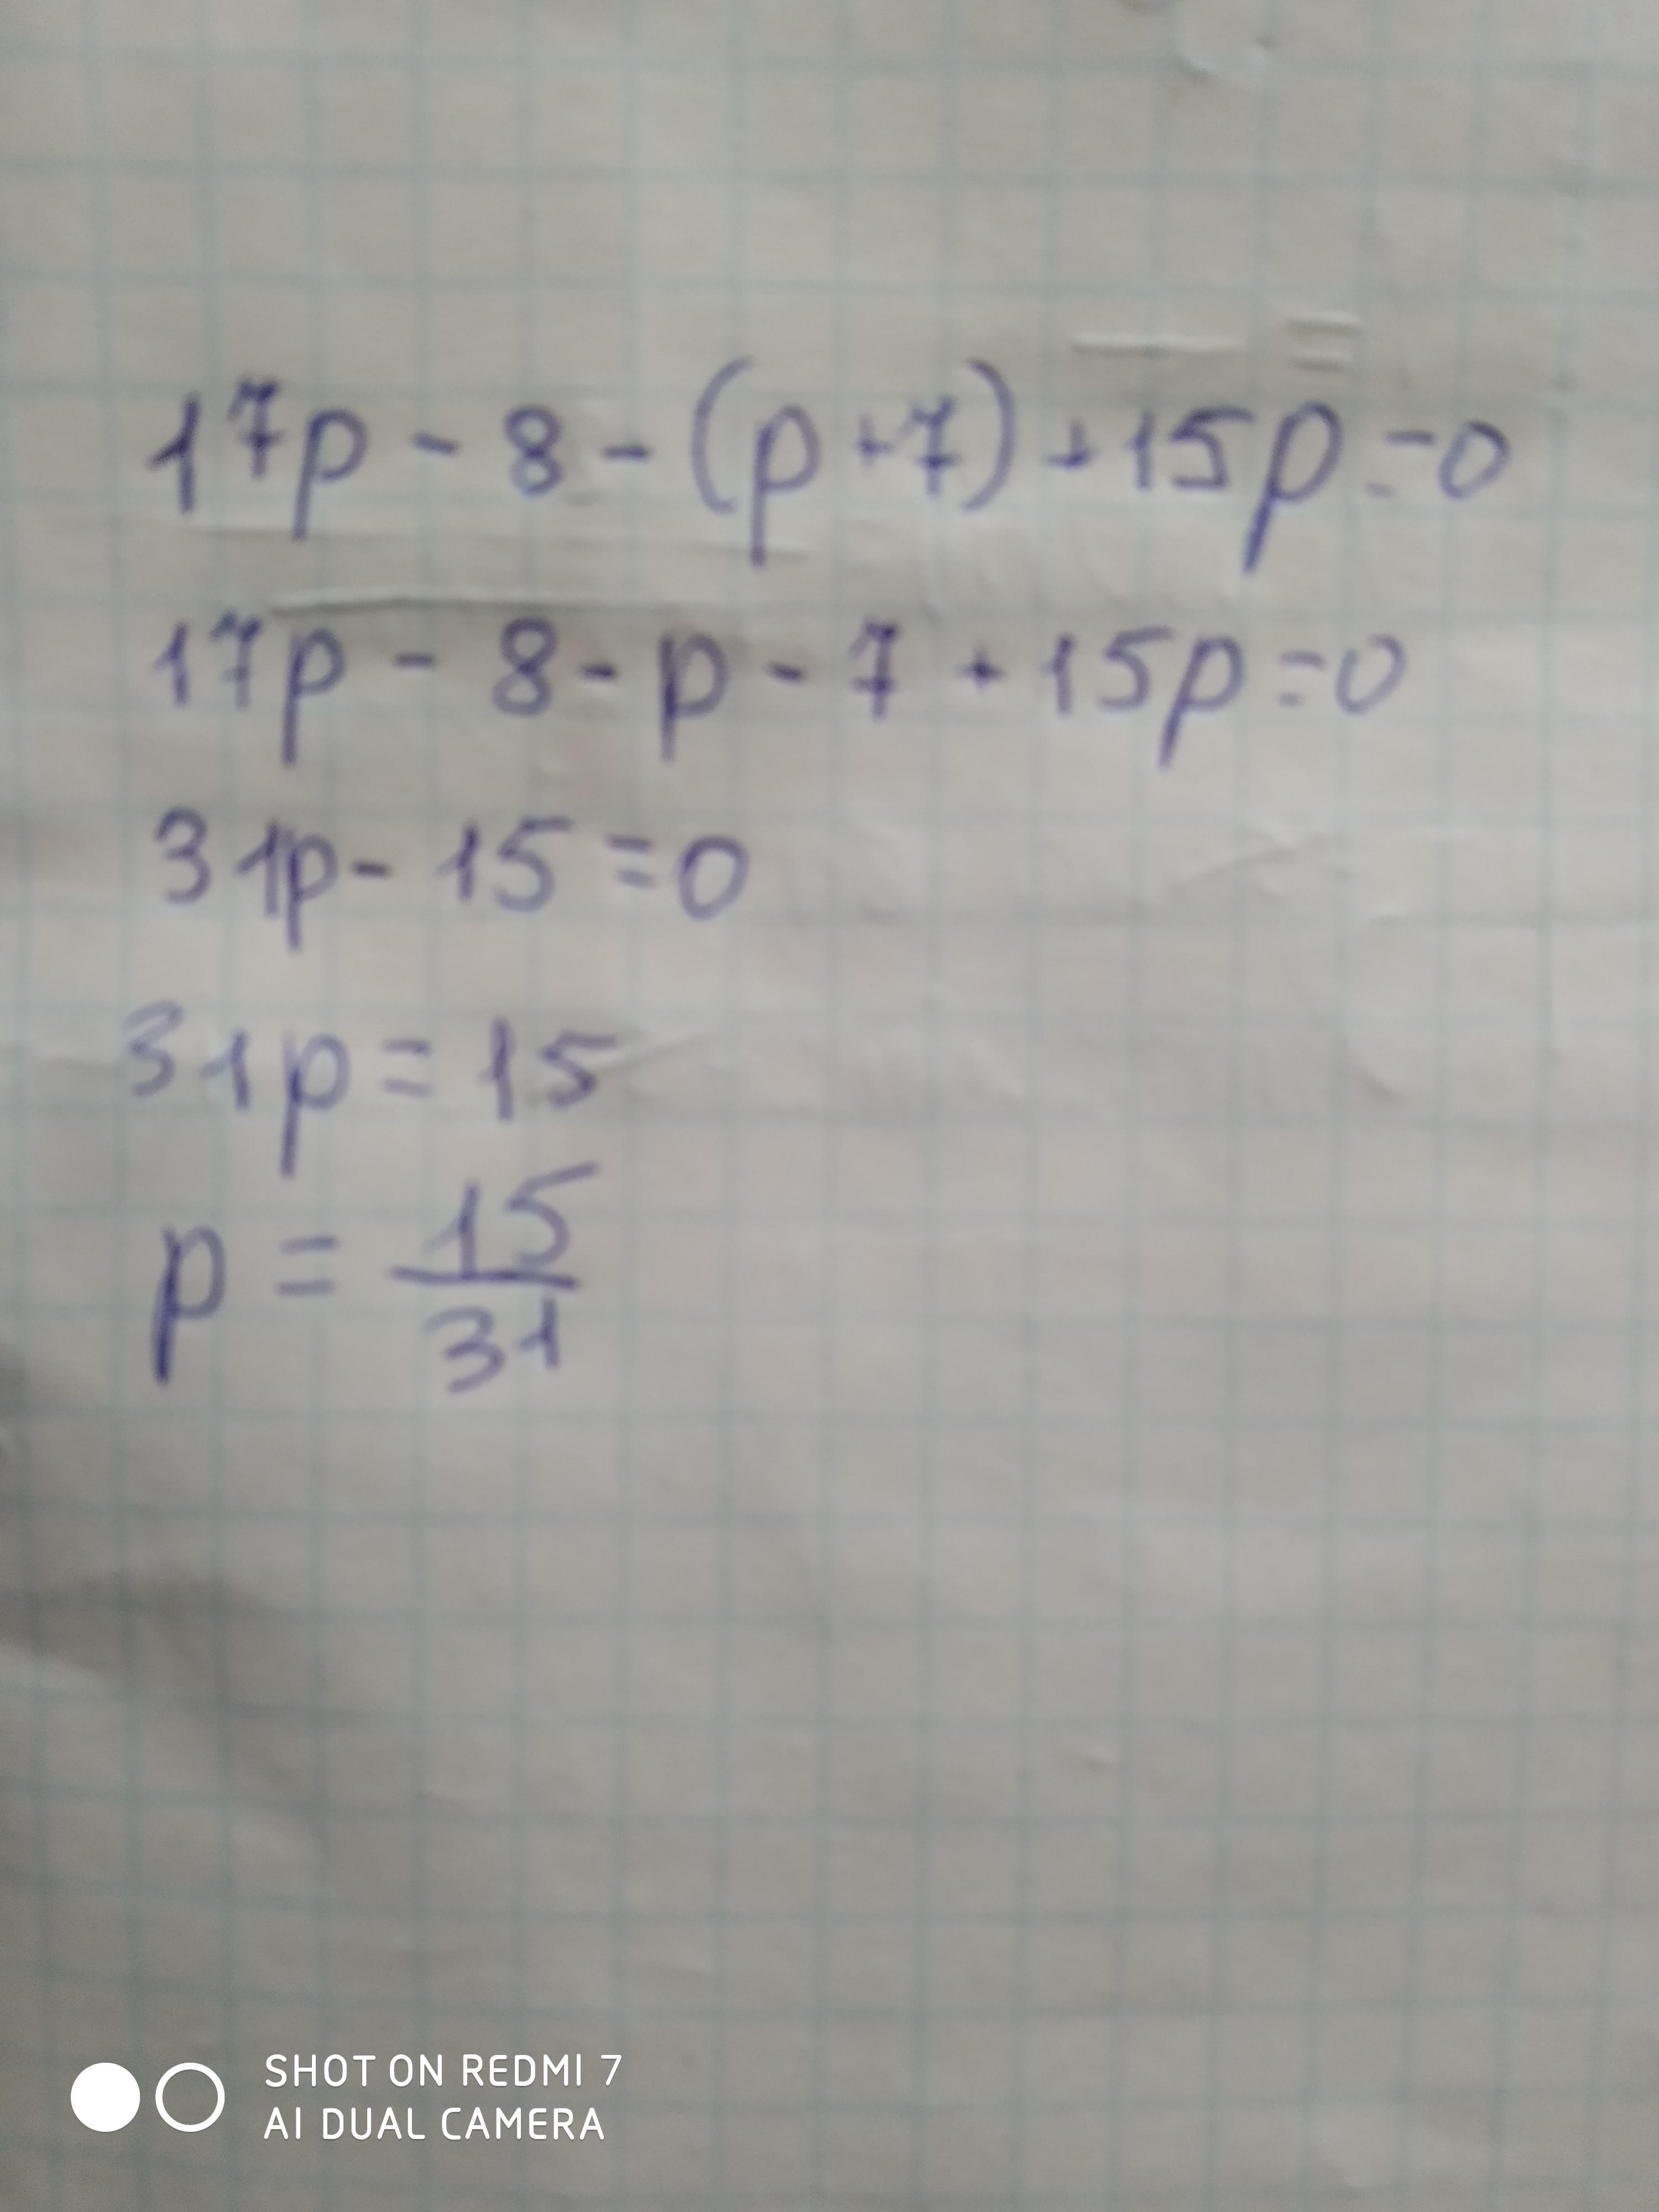 17p - 8 - (p + 7) + 15p = 0
17p - 8 - p - 7 + 15p = 0
31p - 15 = 0
31p = 15
p = 15/31
SHOT ON REDMI 7
AI DUAL CAMERA